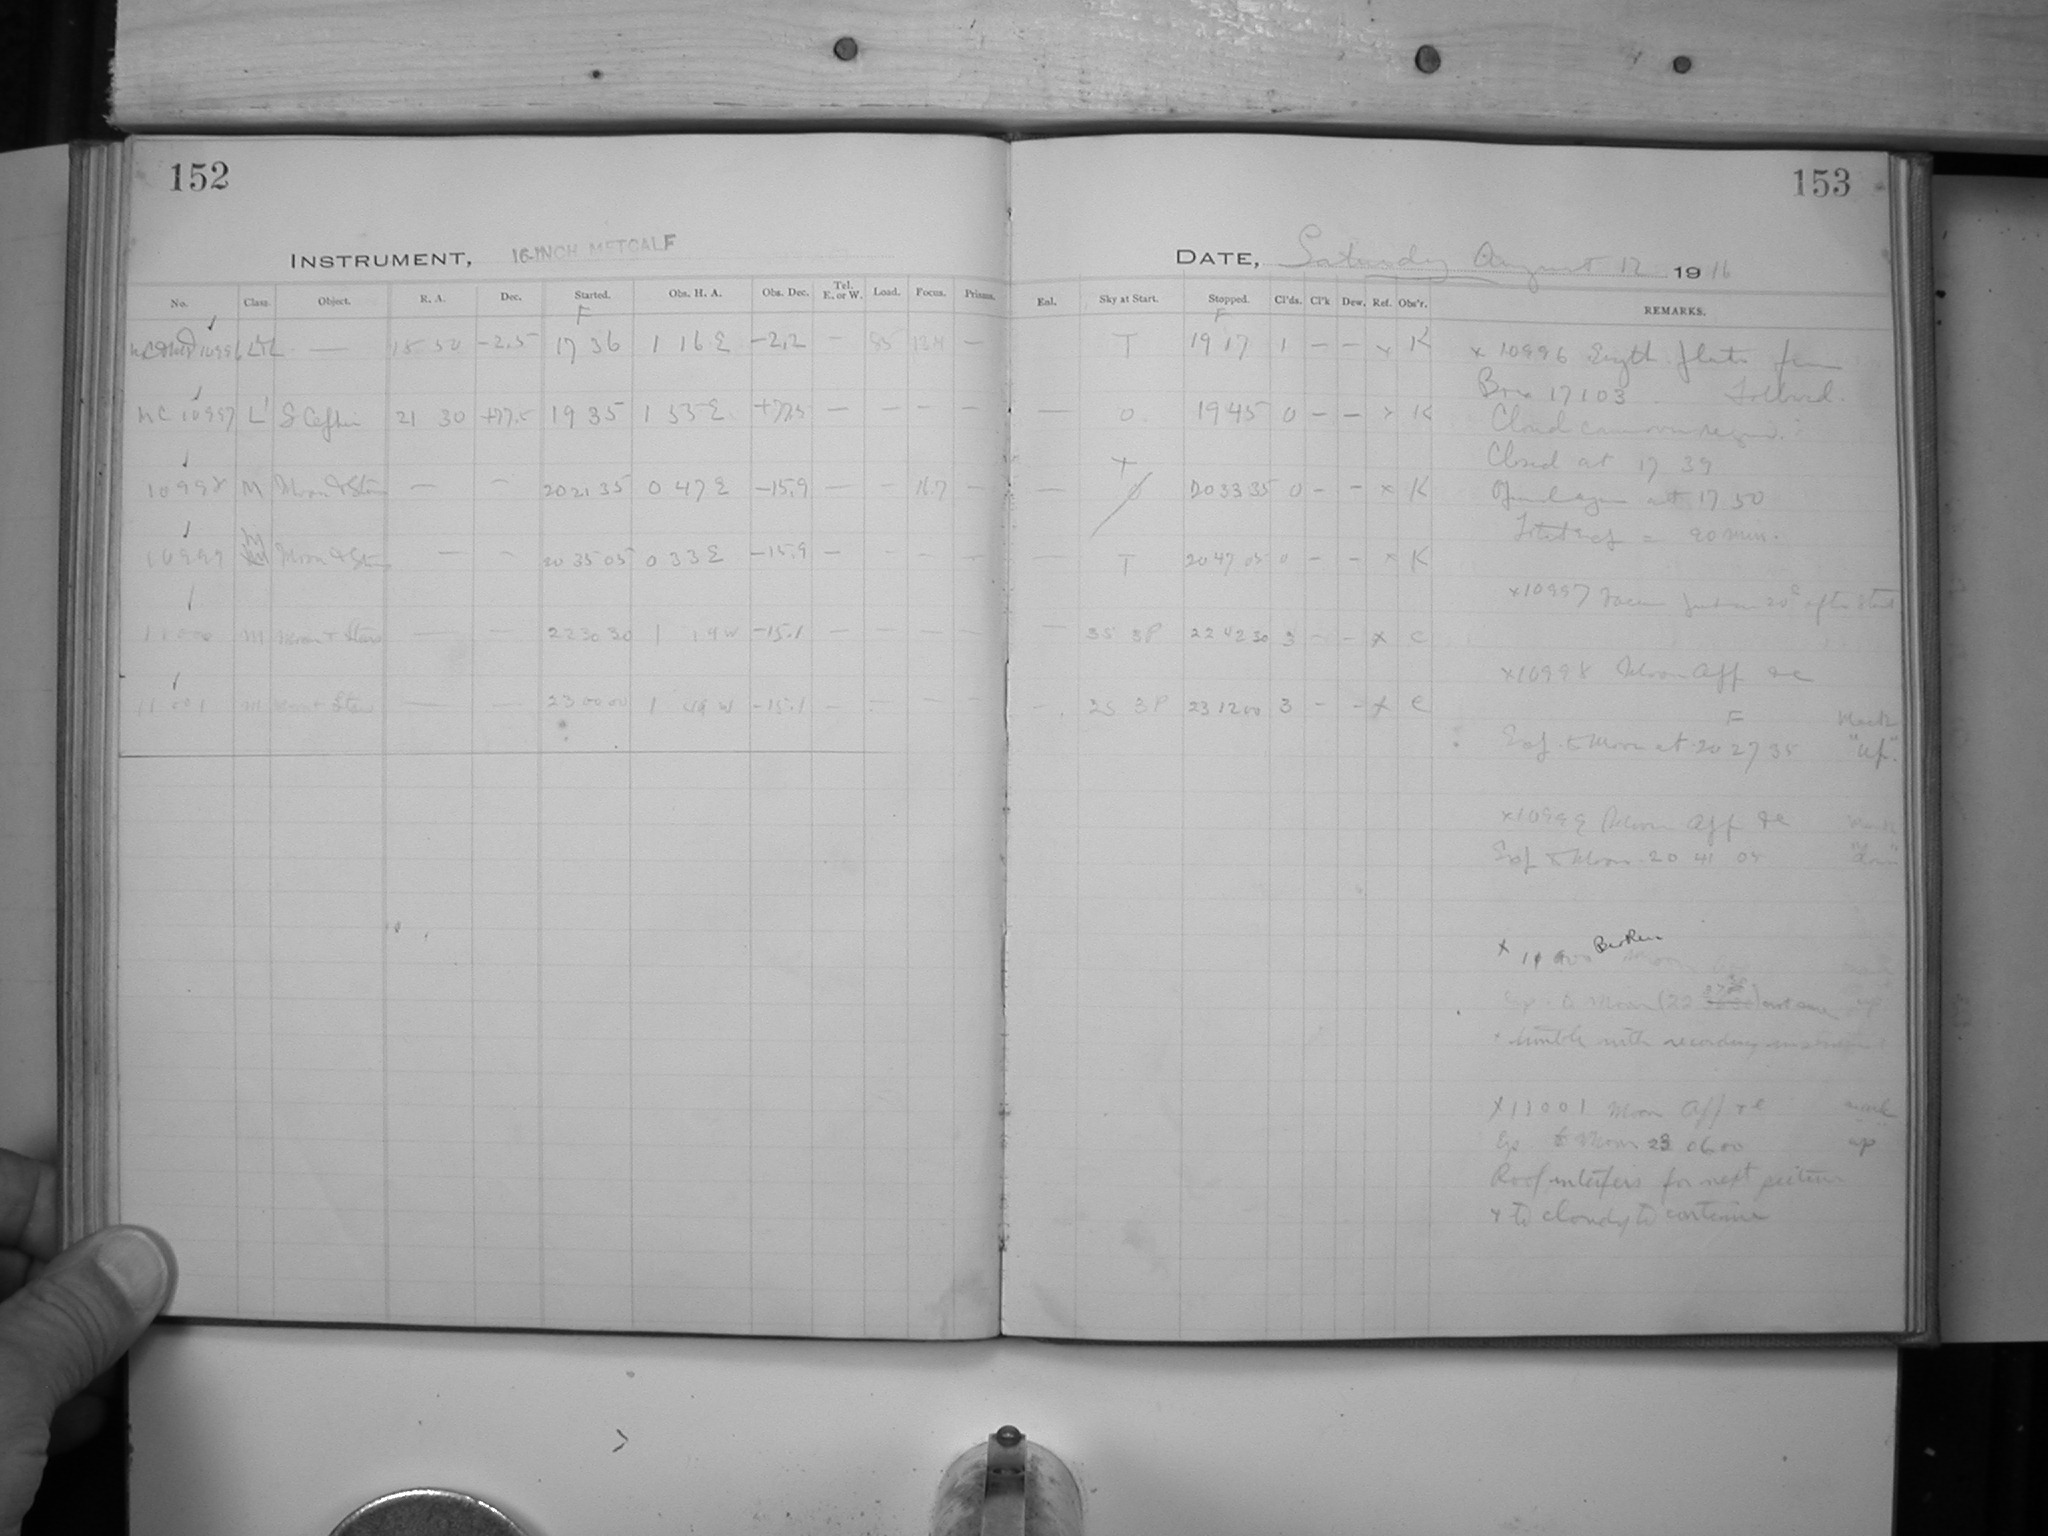 152
153
INSTRUMENT, 16-INCH METCALF
DATE, Saturday August 12 1916
No. Class. Object. R. A. Dec. Started. Obs. H. A. Obs. Dec. Tel. E. or W. Load. Focus. Prisms. Enl. Sky at Start. Stopped. Cl'ds. Cl'k Dew. Ref. Obs'r. REMARKS.
F F
10996 — 15 50 -2.5 17 36 1 16 E -2.2 — 85 — T 19 17 1 — — x K
MC 10997 L S Cephei 21 30 +77.5 19 35 1 55 E +77.5 — — — — — 0 19 45 0 — — x K
10998 M Moon & Stars — — 20 21 35 0 47 E -15.9 — — 16.7 — 20 33 35 0 — — x K
10999 M Moon & Stars — — 20 35 05 0 33 E -15.9 — — — — — T 20 47 05 0 — — x K
11000 M Moon & Stars — — 22 30 30 1 19 W -15.1 — — — — — 3S 3P 22 42 30 3 — — x C
11001 M Moon & Stars — — 23 00 00 1 49 W -15.1 — — — — — 2S 3P 23 12 00 3 — — x C
x 10996 plate from
Box 17103
Cloud came over region.
Closed at 17 39
Opened again at 17 50
Total Exp = 90 min.
x10997 20 after start
x10998 Moon App &c
F Mark
Exp. to Moon at 20 27 35 "up"
x10999 Moon App &c Mark
Exp to Moon 20 41 05 "down"
x 11000 Broken Moon
Exp. to Moon (22 up
+ trouble with recording instrument
x11001 Moon App &c mark
Exp. to Moon 23 06 00 up
Roof interfers for next picture
+ to cloudy to continue